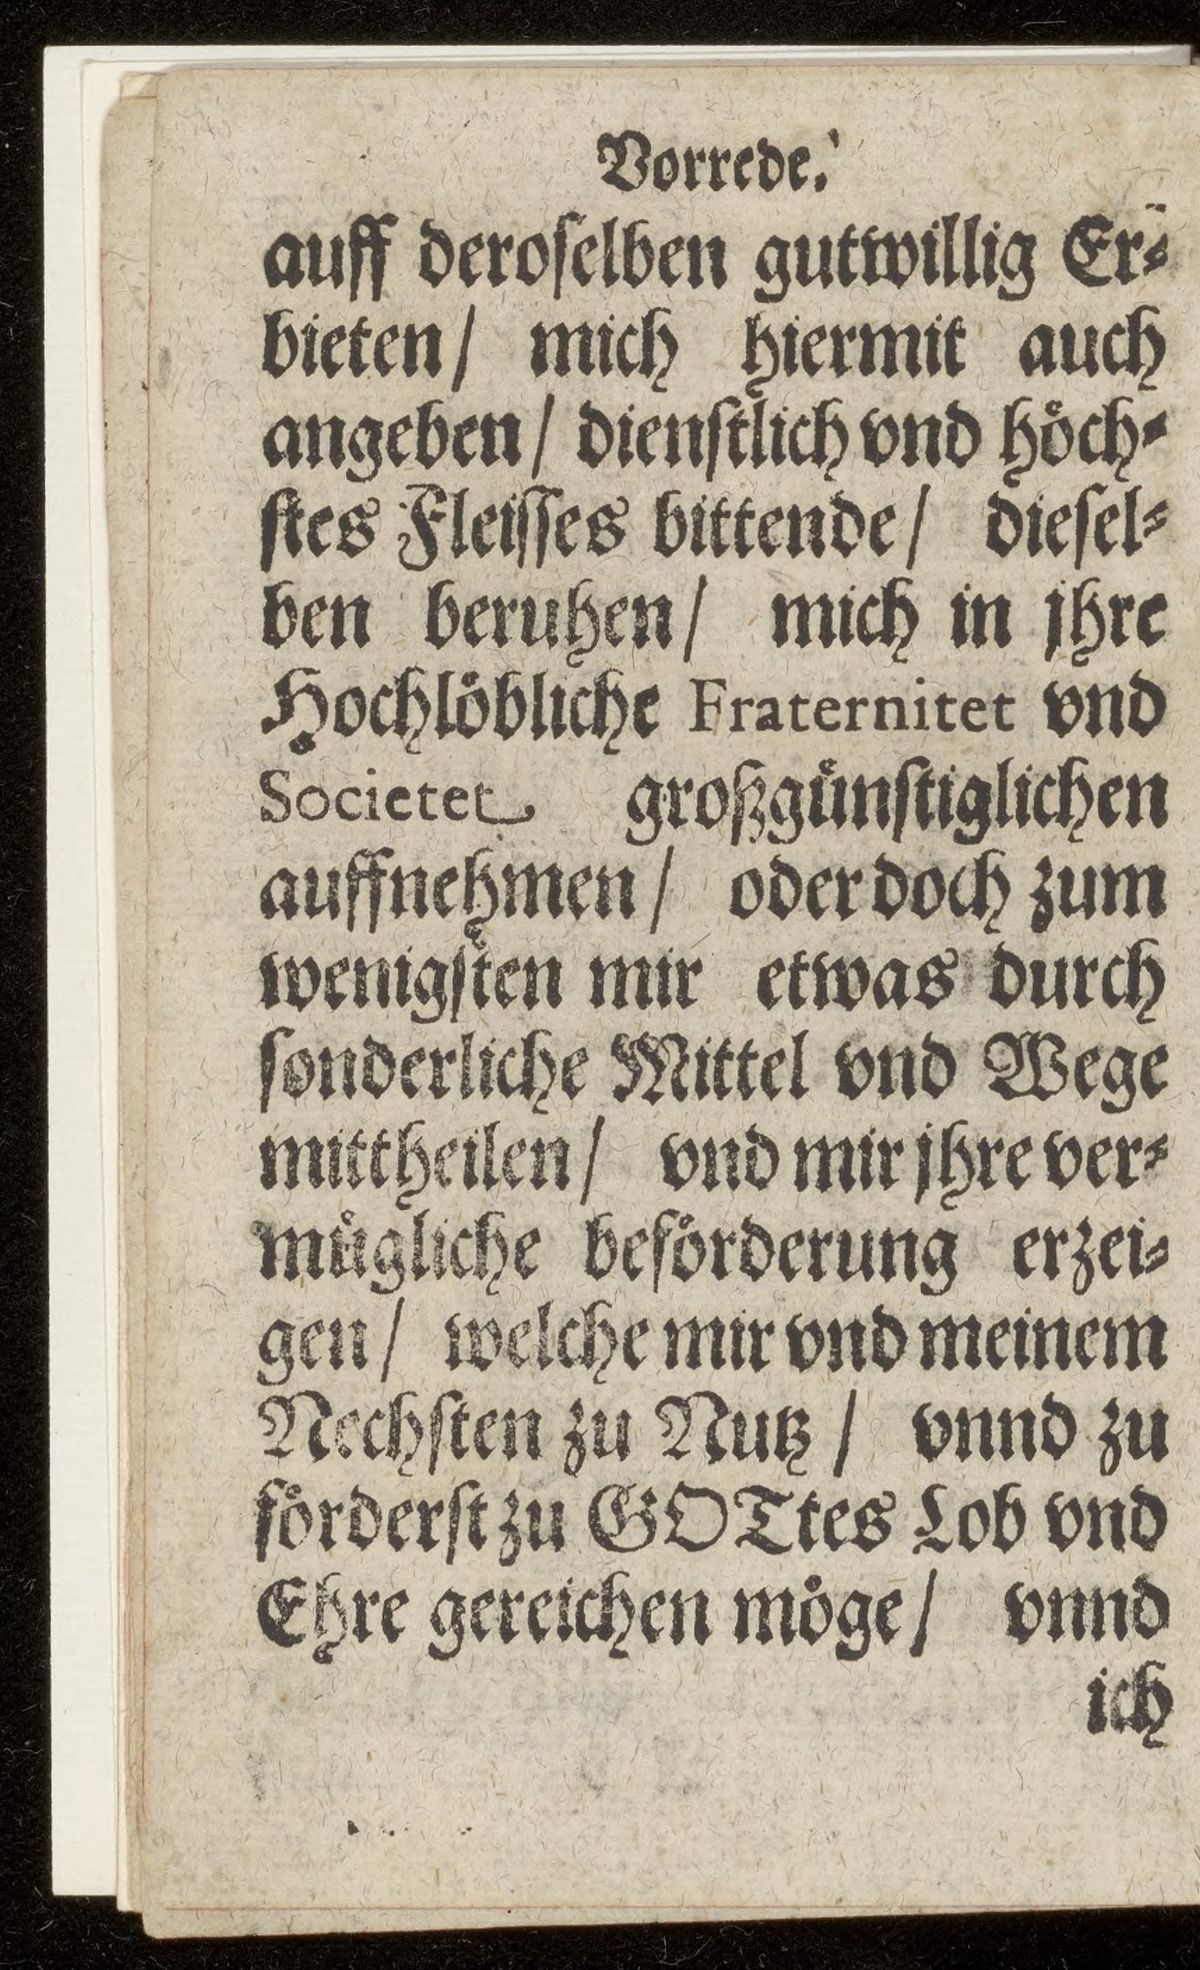 Vorrede.
auff deroſelben gutwillig Er⸗
bieten/ mich hiermit auch
angeben/ dienſtlich vnd hoͤch⸗
ſtes Fleiſſes bittende/ dieſel⸗
ben beruhen/ mich in jhre
Hochloͤbliche Fraternitet vnd
Societet großguͤnſtiglichen
auffnehmen/ oder doch zum
wenigſten mir etwas durch
ſonderliche Mittel vnd Wege
mittheilen/ vnd mir jhre ver⸗
muͤgliche befoͤrderung erzei⸗
gen/ welche mir vnd meinem
Nechſten zu Nutz/ vnnd zu
foͤrderſt zu GOTtes Lob vnd
Ehre gereichen moͤge/ vnnd
ich